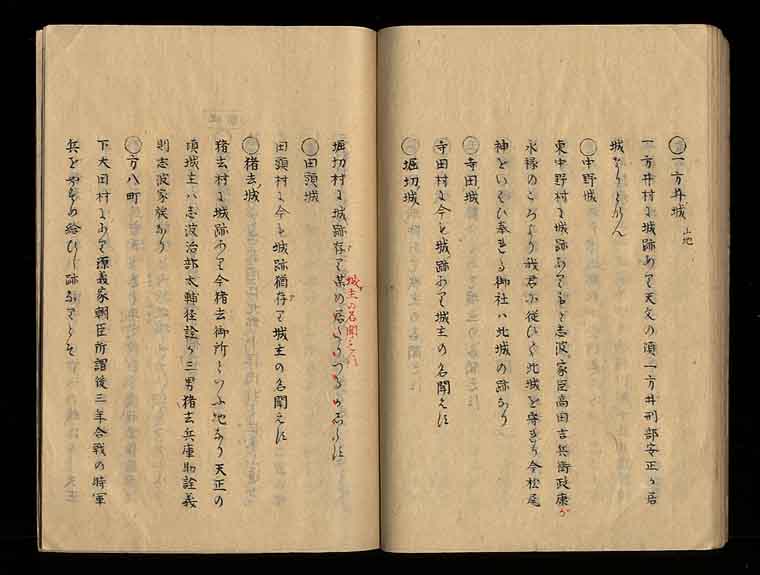 ○一方井城 山地
一方井村に城跡あり天文の頃一方井刑部安正が居
城なりとなん
○中野城
東中野村に城跡ありて志波家臣高田吉兵衛政康が
永禄のころより我君に従ひて此城を守きる今松尾
神といはひ奉きる御社ハ此城の跡なり
○寺田城
寺田村に今も城跡ありて城主の名聞えす
○堀切城
堀切村に城跡存て某の居
城主の名聞えす
○田頭城
田頭村に今も城跡猶存て城主の名聞えす
○猪去城
猪去村に城跡ありて今猪去御所といふ地あり天正の
頃城主ハ志波治部太輔径詮が三男猪去兵庫助詮義
則志波家族なり
○方八町
下太田村にありて源義家朝臣所謂後三年合戦の将軍
兵を 給ひし跡なりとそ